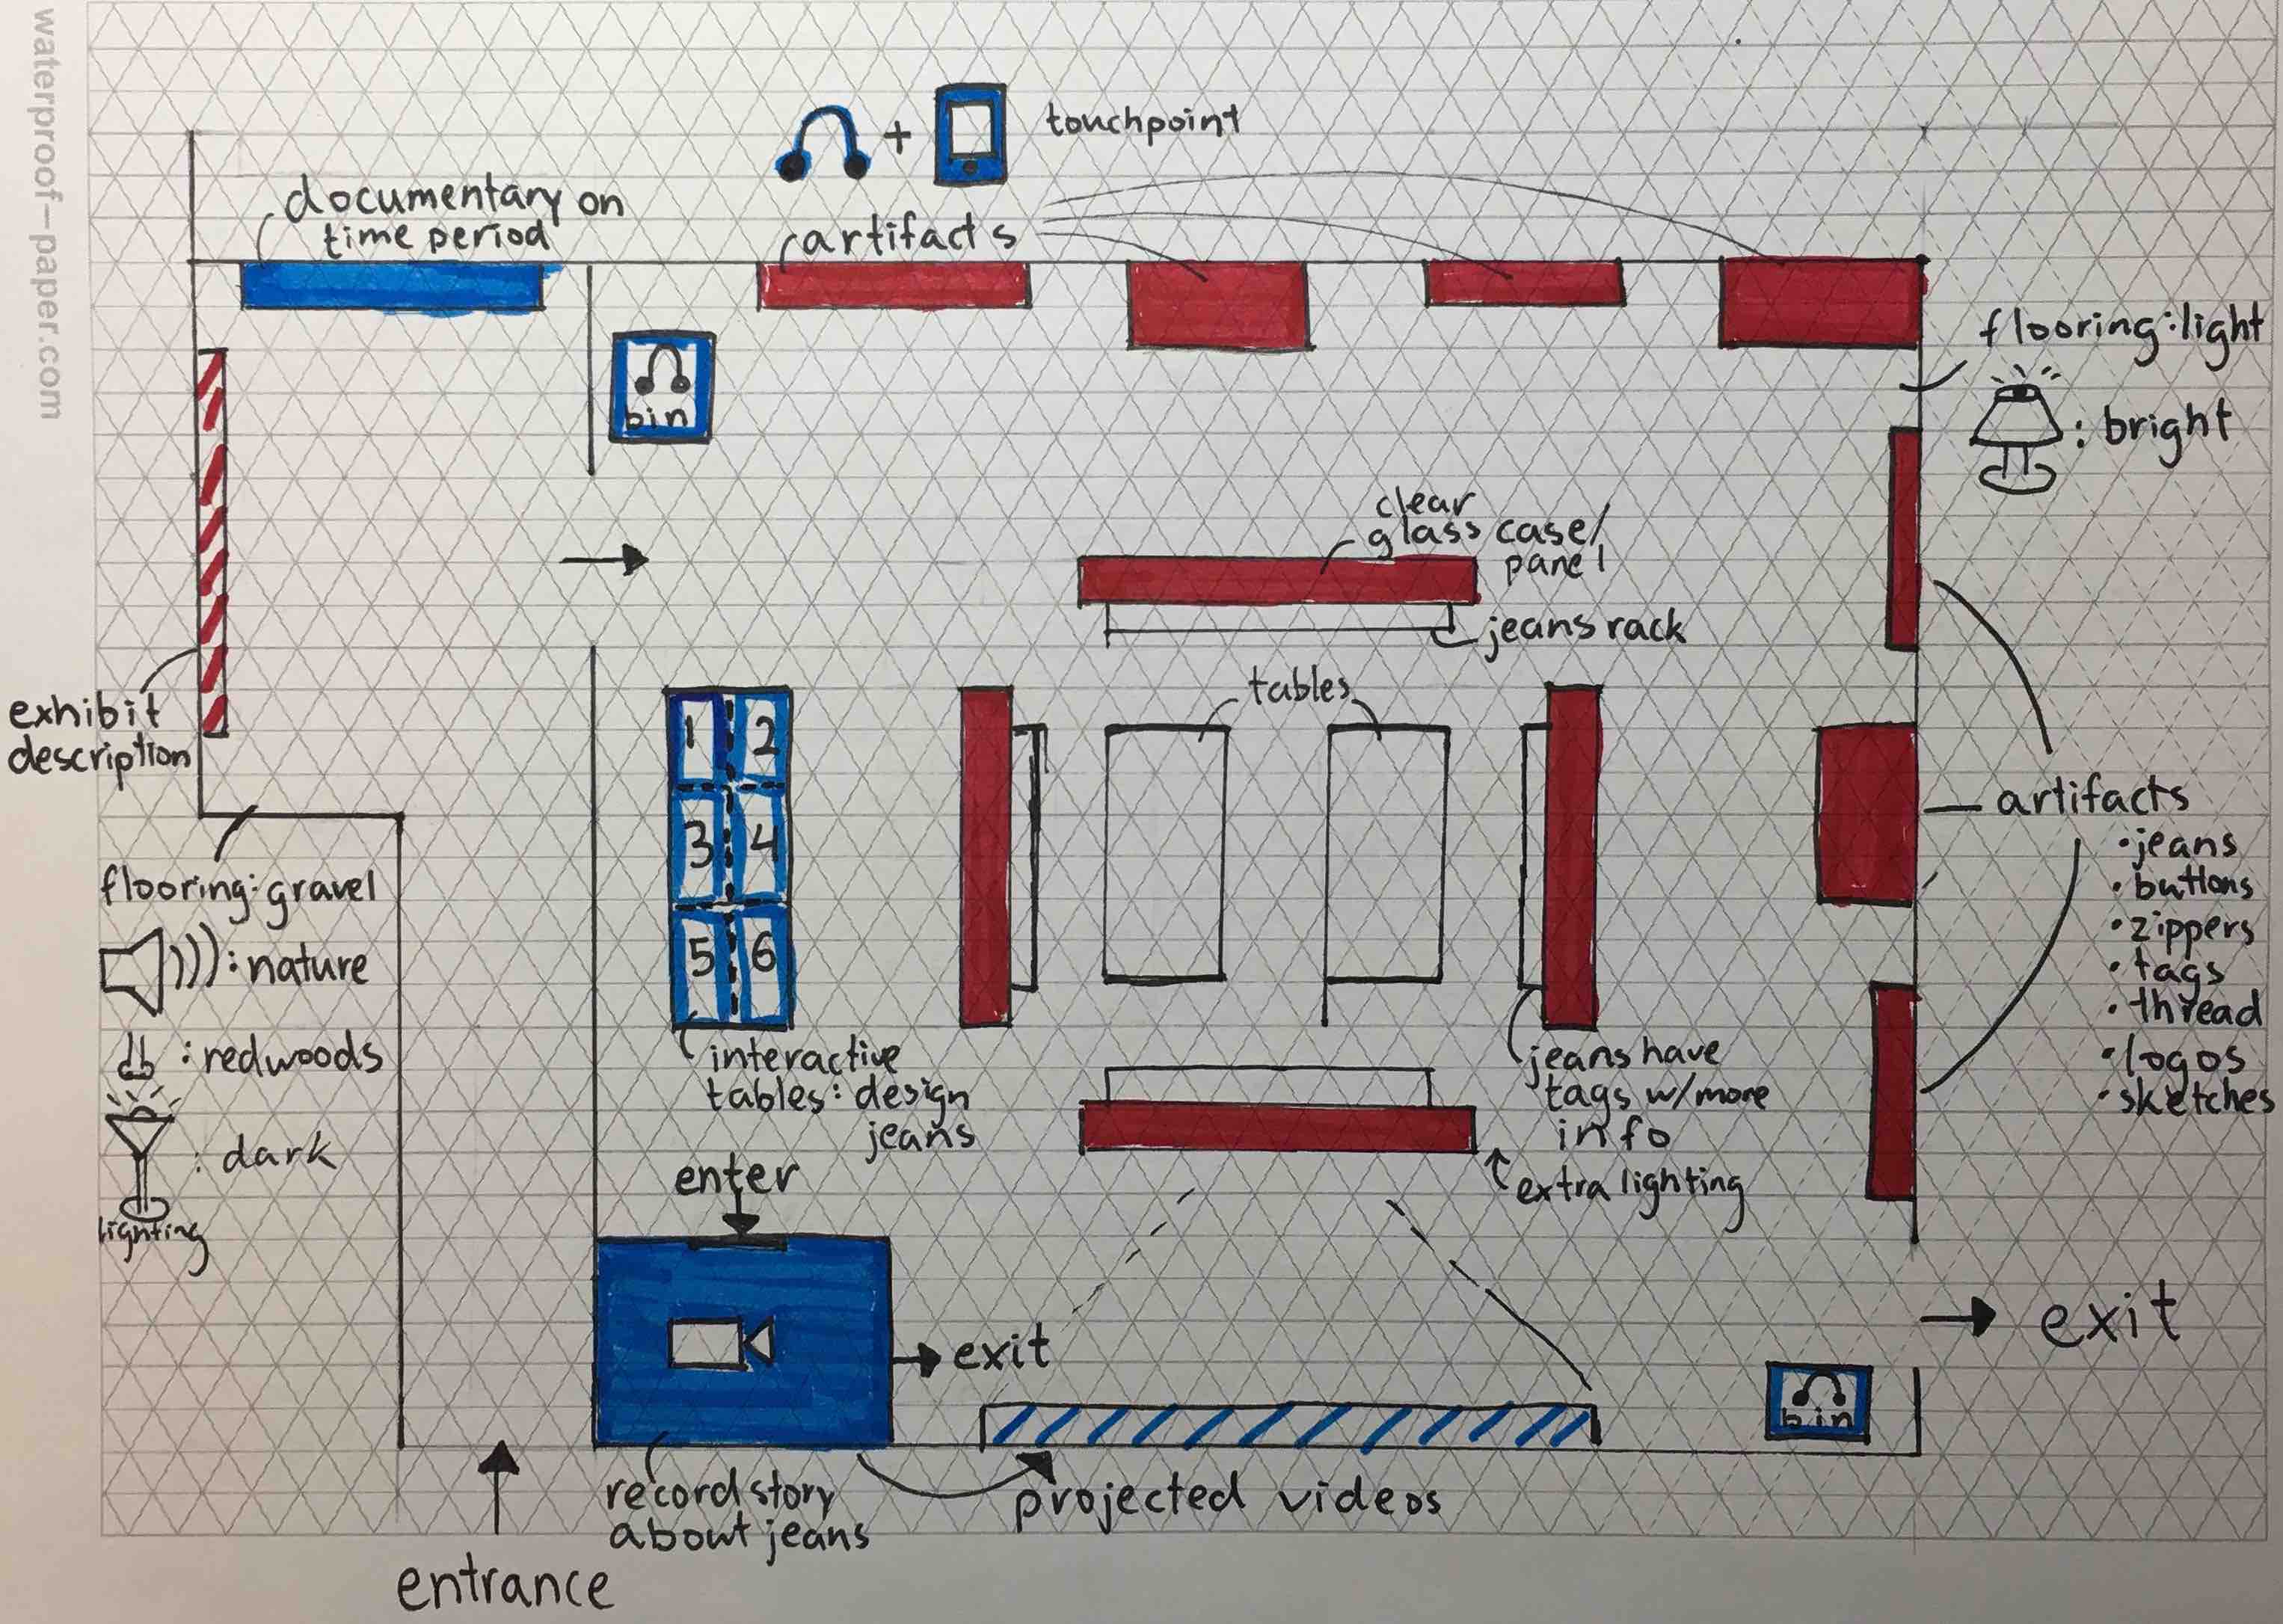 waterproof-paper.com
touchpoint
documentary on
time period
artifacts
bin
flooring: light
: bright
clear
glass case/
panel
jeans rack
exhibit
description
tables
1 2
3 4
5 6
artifacts
• jeans
• buttons
• zippers
• tags
• thread
• logos
• sketches
flooring: gravel
: nature
: redwoods
: dark
lighting
interactive
tables: design
jeans
jeans have
tags w/more
info
extra lighting
enter
exit
exit
bin
record story
about jeans
projected videos
entrance